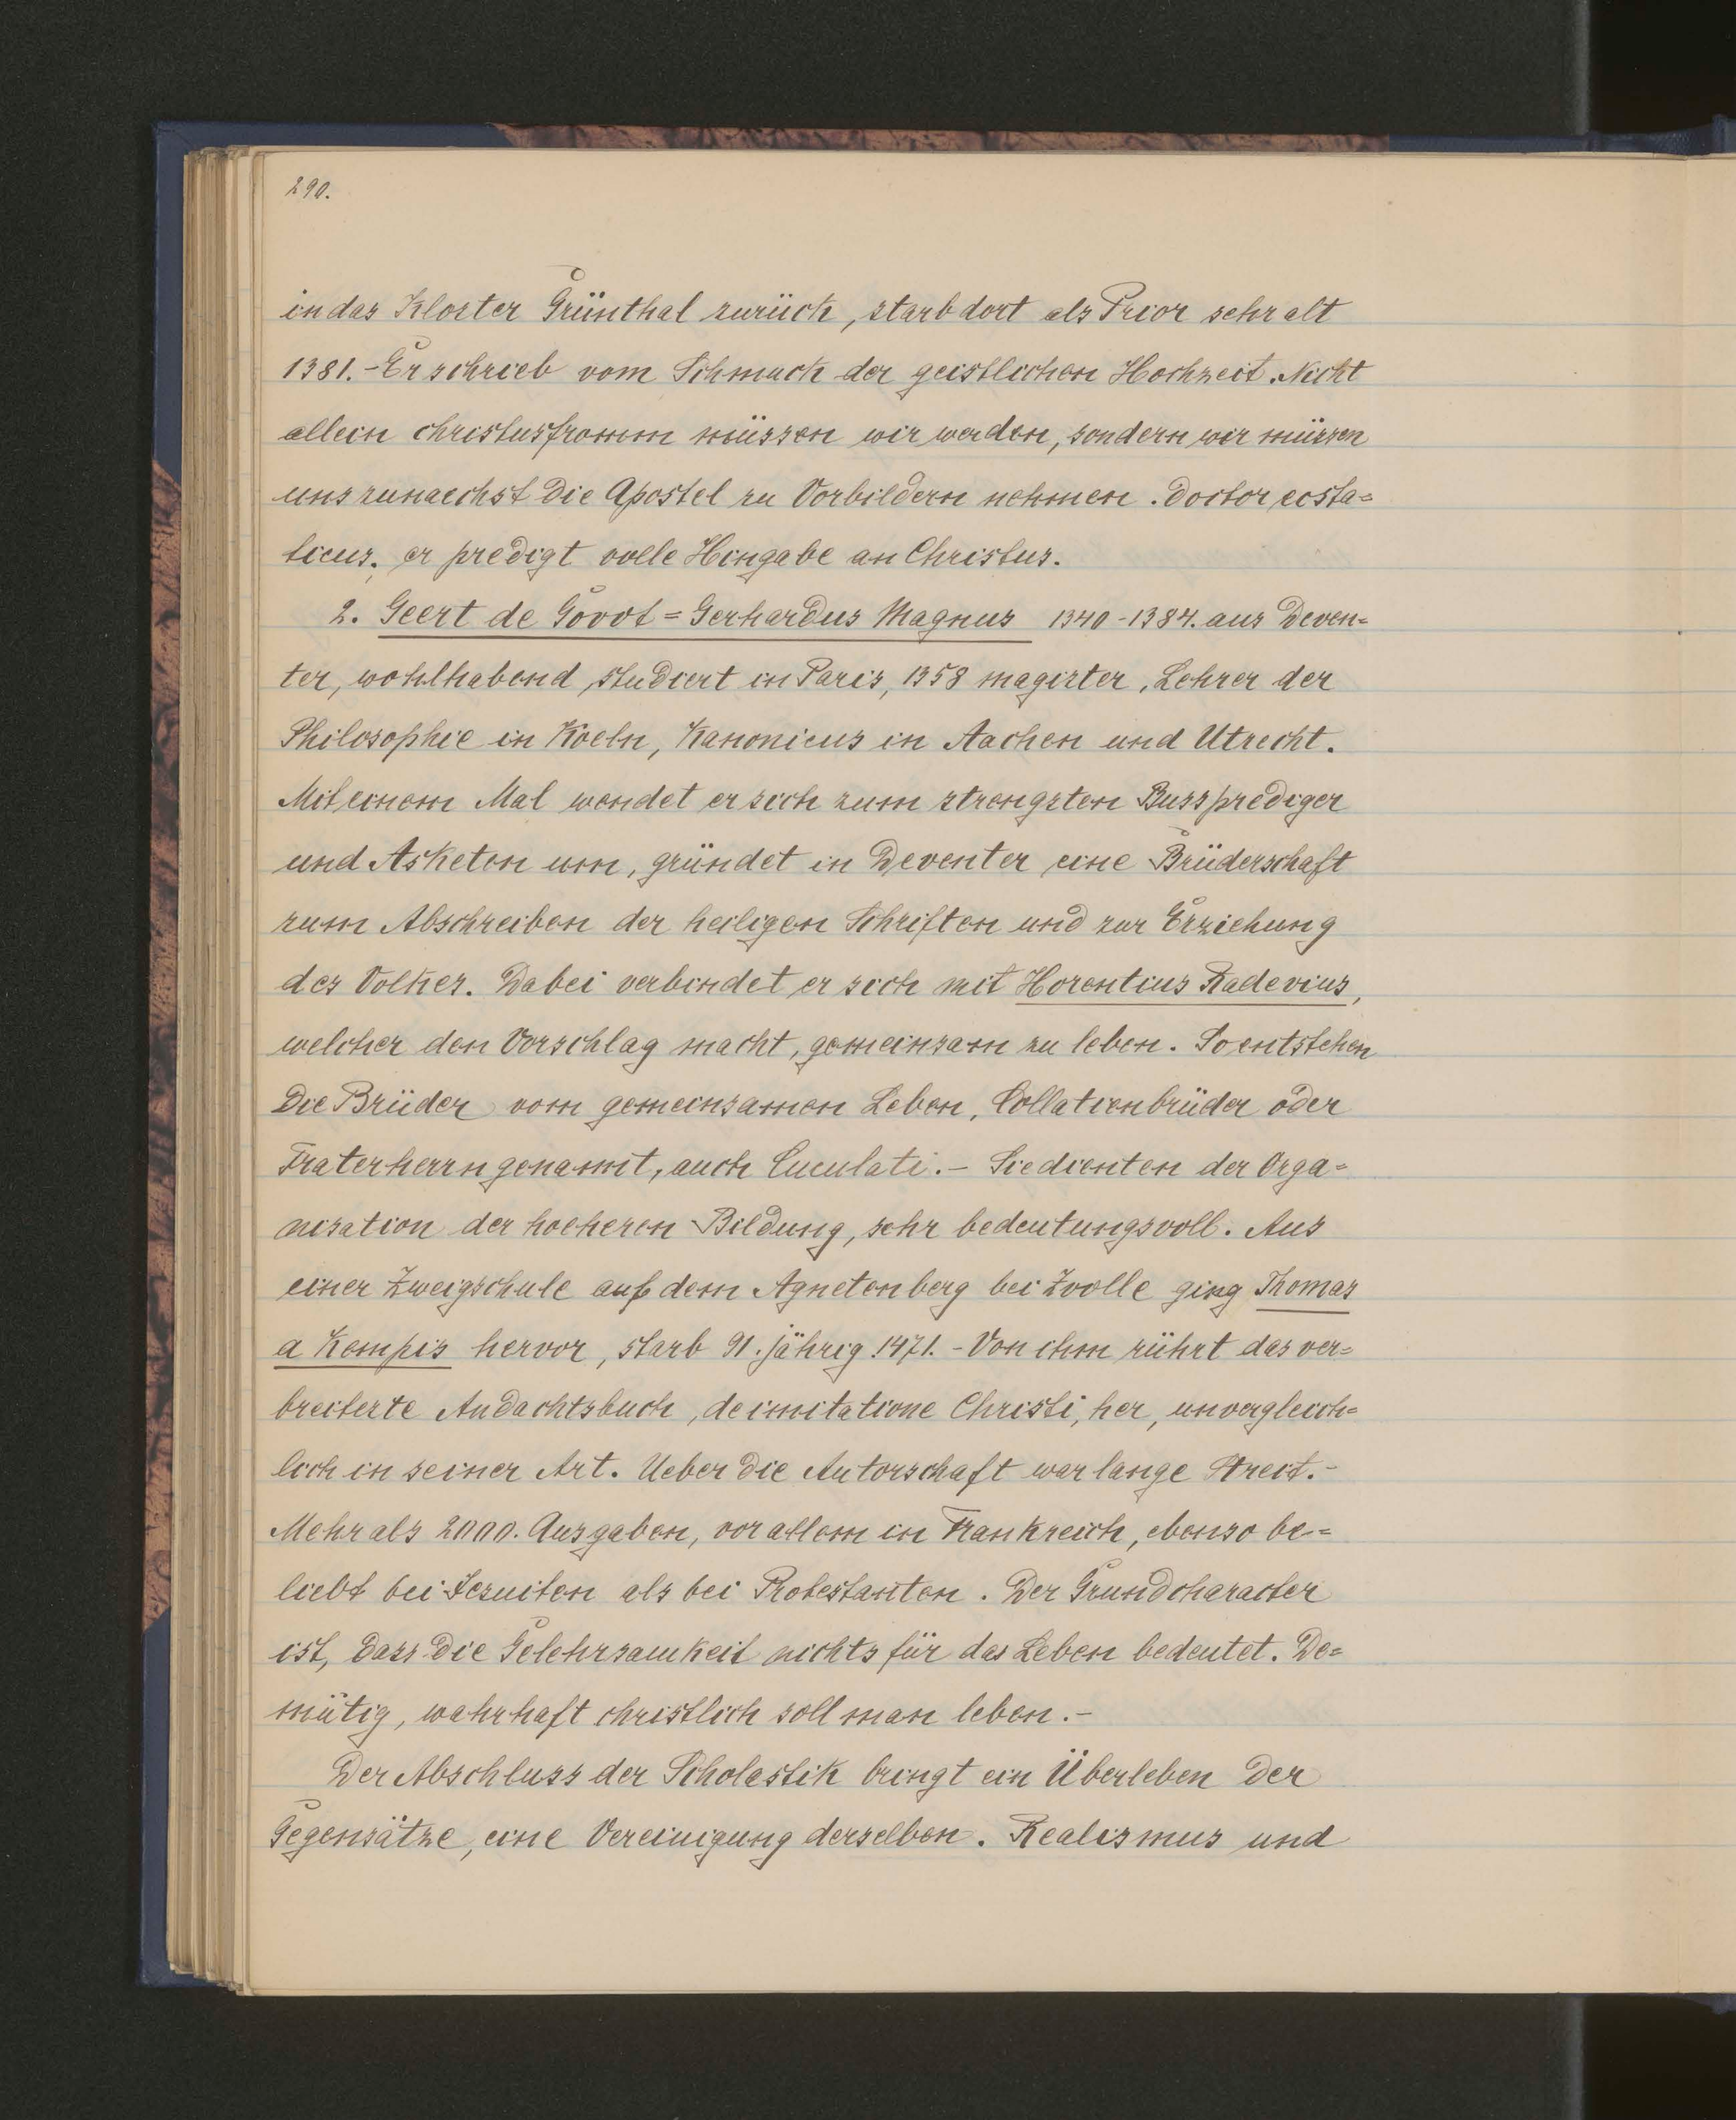 290.
in das Kloster Grünthal zurück, starb dort als Prior sehr alt
1381. - Er schrieb vom Schmuck der geistlichen Hochzeit. Nicht
allein christusfromm müssen wir werden, sondern wir müssen
uns zunaechst die Apostel zu Vorbildern nehmen. Doctor ecsta=
ticus. er predigt volle Hingabe an Christus.
2. Geert de Govot = Gerhardus Magnus 1340 - 1384. aus Deven=
ter, wohlhabend, studiert in Paris, 1358 magister, Lehrer der
Philosophie in Koeln, Kanonicus in Aachen und Utrecht.
Mit einem Mal wendet er sich zum strengsten Bussprediger
und Asketen um, gründet in Deventer eine Brüderschaft
zum Abschreiben der heiligen Schriften und zur Erziehung
des Volkes. Dabei verbindet er sich mit Horentius Radevius,
welcher den Vorschlag macht, gemeinsam zu leben. So entstehen
die Brüder vom gemeinsamen Leben, Collationbrüder oder
Fraterherrn genannt, auch Cuculati. - Sie dienten der Orga=
nisation der hoeheren Bildung, sehr bedeutungsvoll. Aus
einer Zweigschule auf dem Agnetenberg bei Zwolle ging Thomas
a Kempis hervor, starb 91. jährig 1471. - Von ihm rührt das ver=
breiterte Andachtsbuch, de imitatione Christi, her, unvergleich=
lich in seiner Art. Ueber die Autorschaft war lange Streit. -
Mehr als 2000. Ausgaben, vor allem in Frankreich, ebenso be=
liebt bei Jesuiten als bei Protestanten. Der Grundcharacter
ist, dass die Gelehrsamkeit nichts für das Leben bedeutet. De=
mütig, wahrhaft christlich soll man leben. -
Der Abschluss der Scholastik bringt ein Überleben der
Gegensätze, eine Vereinigung derselben. Realismus und